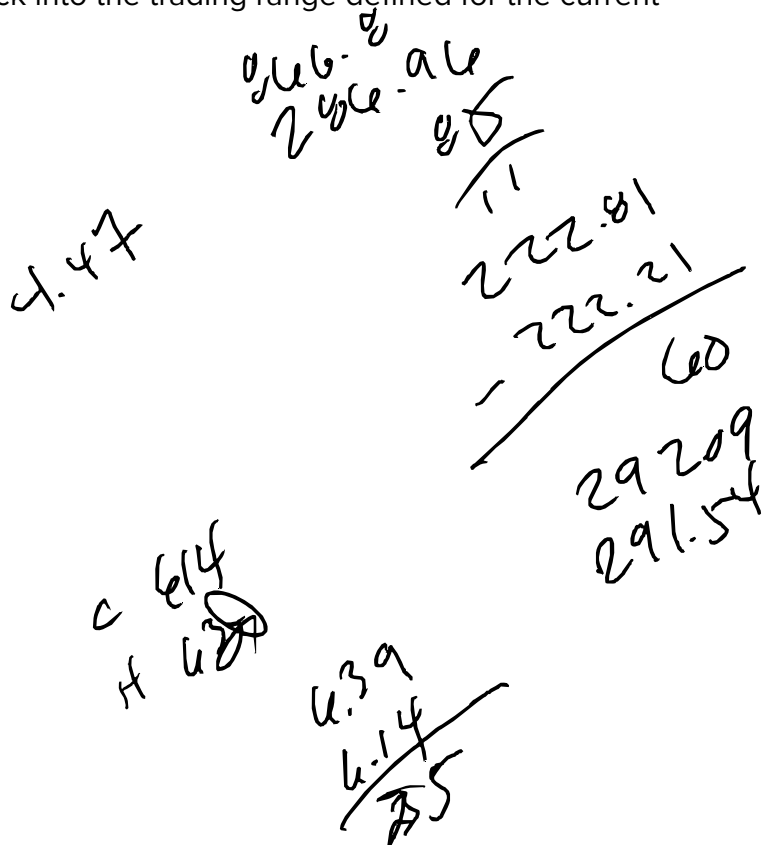 ck into the trading range defined for the current
286.96
85
11
4.47
222.81
- 222.21
60
29209
291.54
C 614
H
6.39
6.14
25